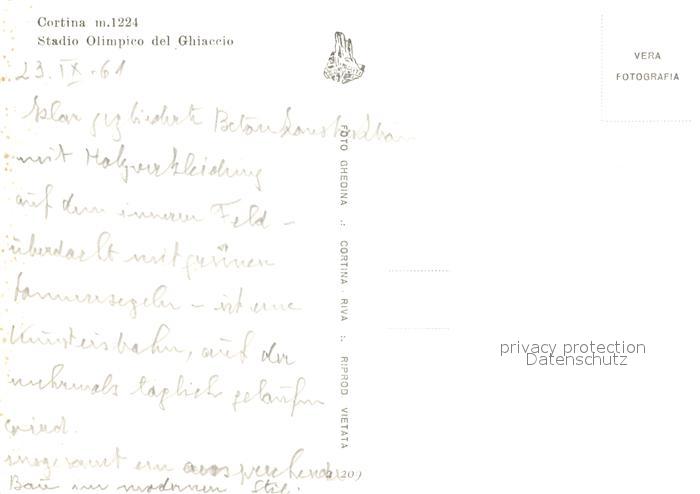 Cortina m.1224
Stadio Olimpico del Ghiaccio
23.IX.61
klar gegliederte Betonkonstruktion
mit Holzverkleidung
auf dem inneren Feld -
überdacht mit grünen
Sonnensegeln - ist eine
Kunsteisbahn, auf der
mehrmals täglich gelaufen
wird.
insgesamt ein ansprechender
Bau im modernen Stil.
209
FOTO GHEDINA .:. CORTINA - RIVA .:. RIPROD VIETATA
VERA
FOTOGRAFIA
privacy protection
Datenschutz